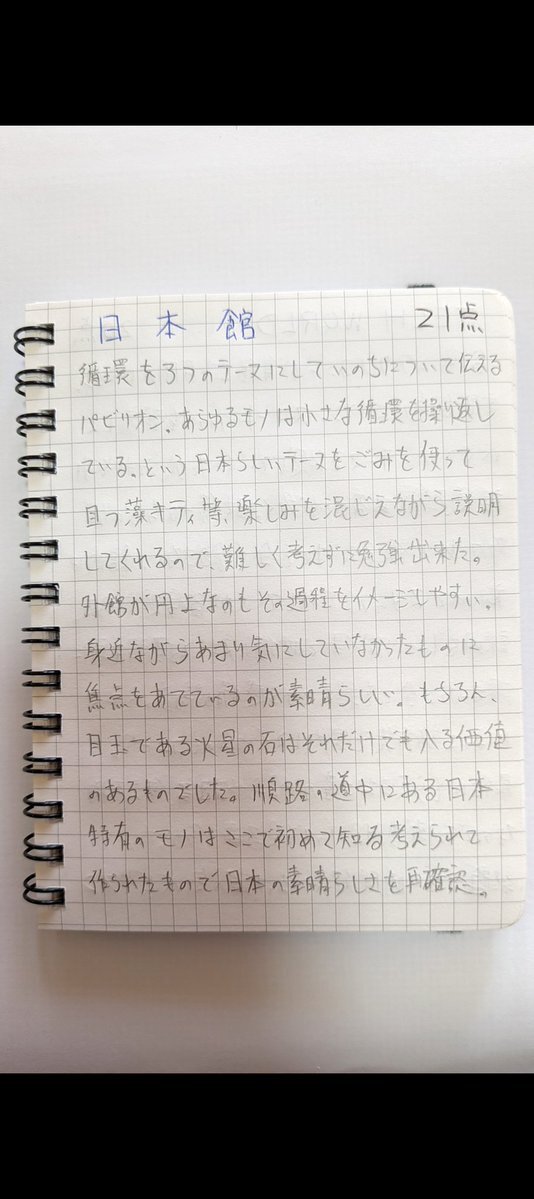 日本館 21点
循環を3つのテーマにしていのちについて伝える
パビリオン。あらゆるモノは小さな循環を繰り返し
ている。という日本らしいテーマをごみを使って
且つ藻キティ等、楽しみを混じえながら説明
してくれるので、難しく考えずに勉強出来た。
外館が円上なのもその過程をイメージしやすい。
身近ながらあまり気にしていなかったものに
焦点をあてているのが素晴らしい。もちろん、
目玉である火星の石はそれだけでも入る価値
のあるものでした。順路の道中にある日本
特有のモノはここで初めて知る考えられて
作られたもので日本の素晴らしさを再確認。